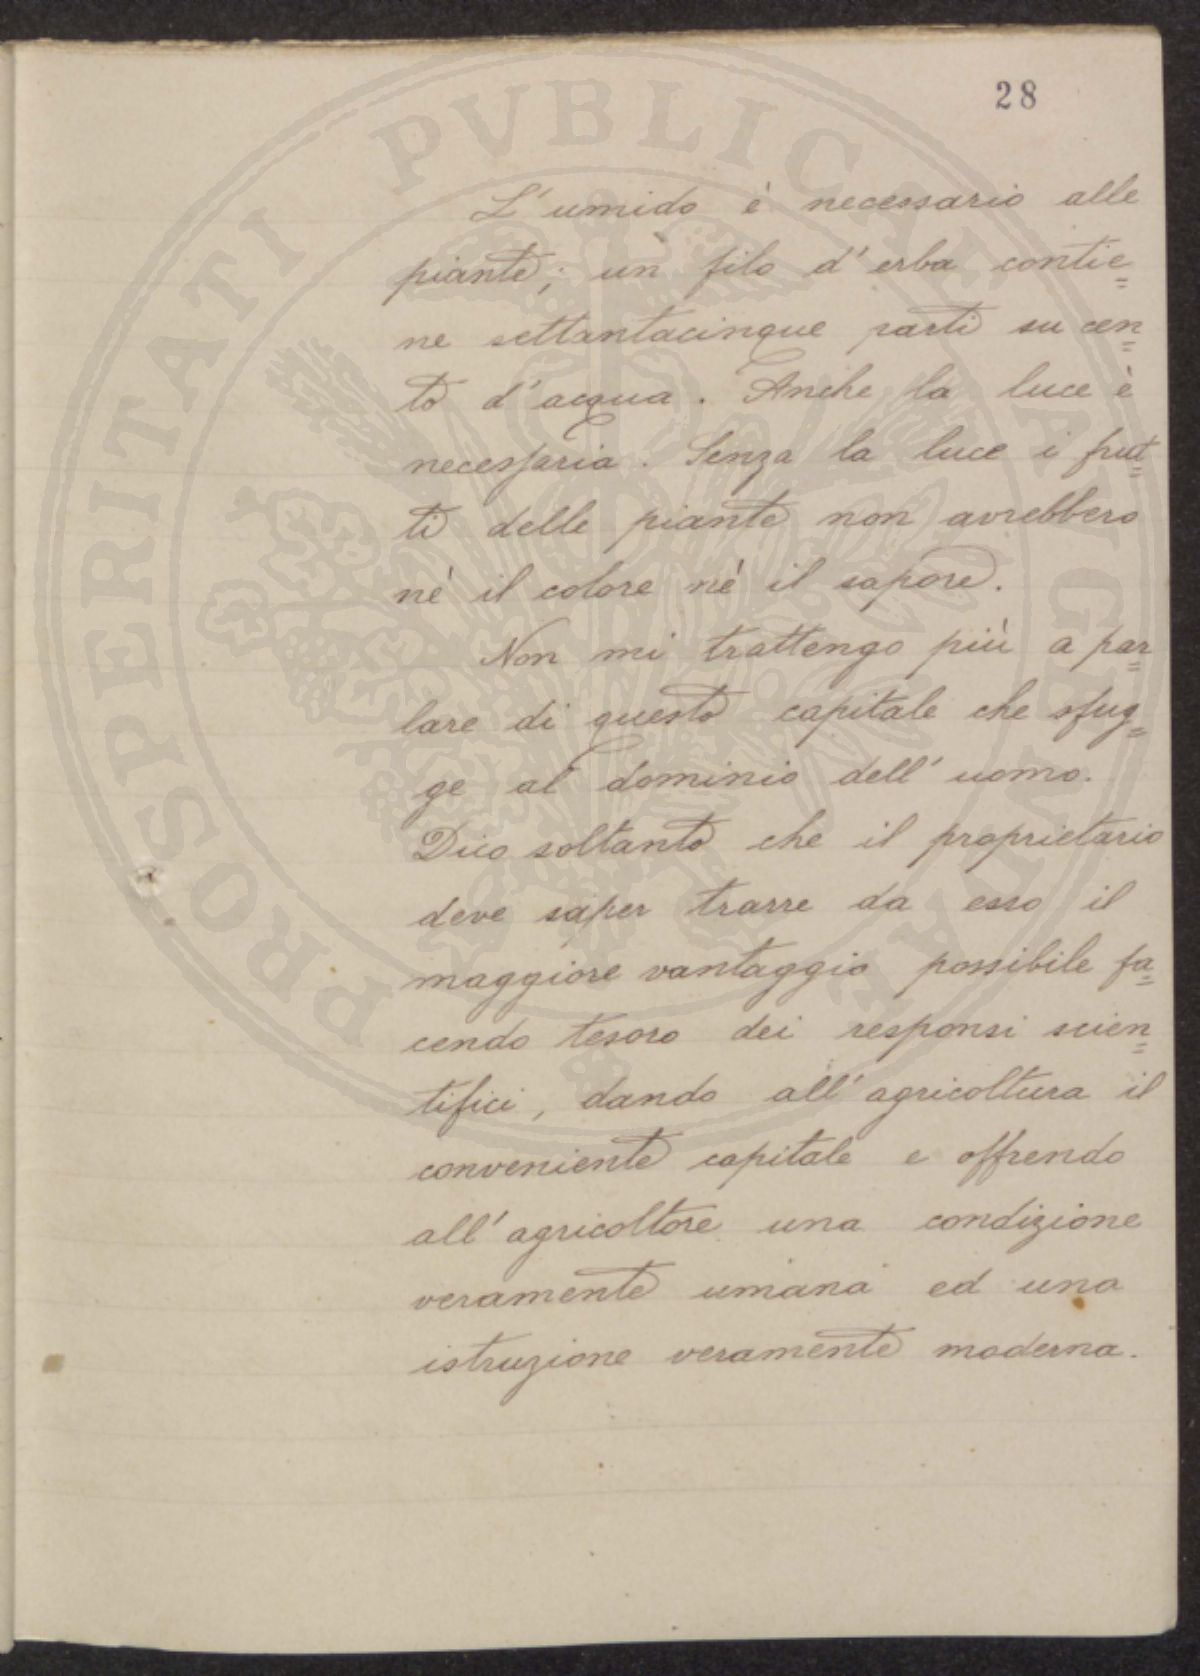 28
L'umido è necessario alle
piante; un filo d'erba contie=
ne settantacinque parti su cen=
to d'acqua. Anche la luce è
necessaria. Senza la luce i frut=
ti delle piante non avrebbero
nè il colore nè il sapore.
Non mi trattengo più a par=
lare di questo capitale che sfug=
ge al dominio dell'uomo.
Dico soltanto che il proprietario
deve saper trarre da esso il
maggiore vantaggio possibile fa=
cendo tesoro dei responsi scien=
tifici, dando all'agricoltura il
conveniente capitale e offrendo
all'agricoltore una condizione
veramente umana ed una
istruzione veramente moderna.
PROSPERITATI PVBLICAE AVGENDAE